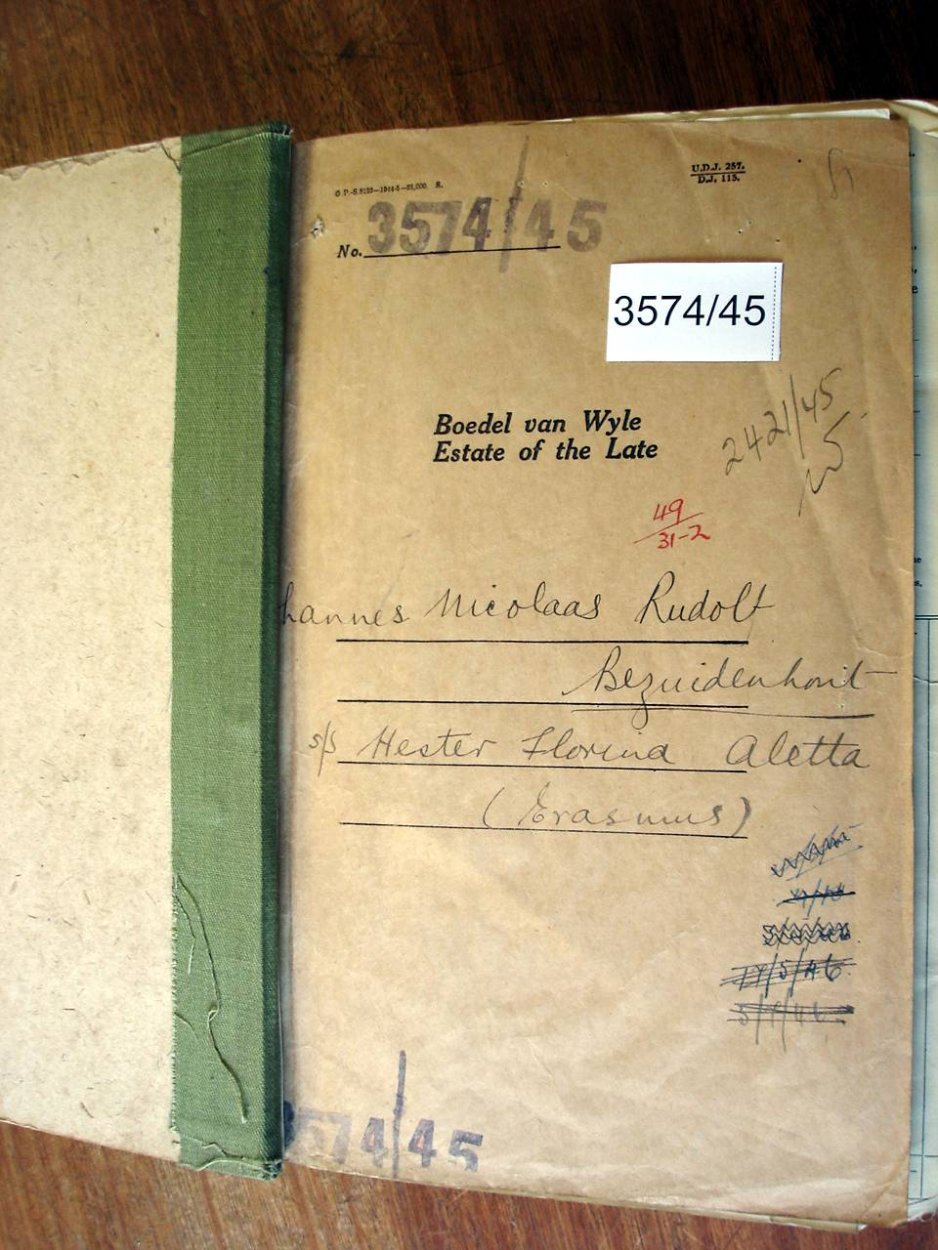 U.D.J. 257.
D.J. 115.
No. 3574/45
3574/45
Boedel van Wyle
Estate of the Late
2421/45
49
31-2
hannes Nicolaas Rudolf
Bezuidenhout
s/s Hester Florina Aletta
(Erasmus)
17/5/46
574/45